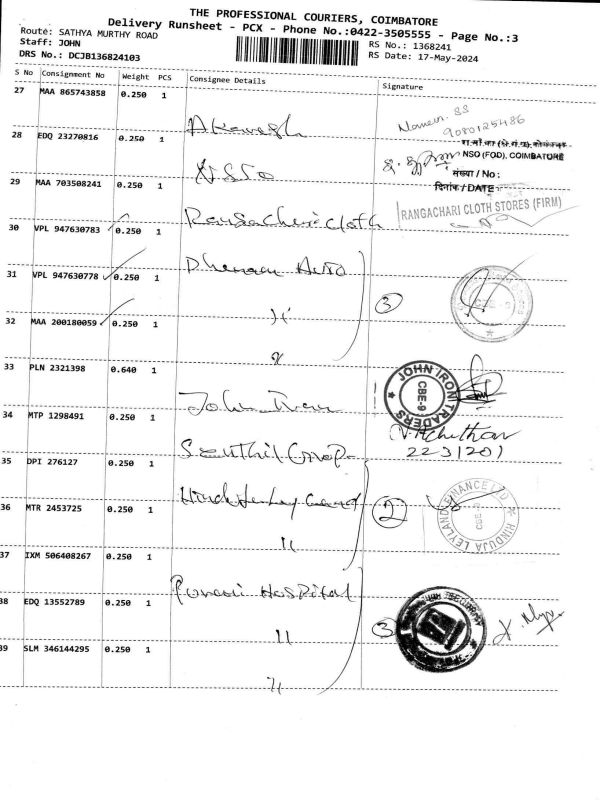 THE PROFESSIONAL COURIERS, COIMBATORE
Delivery Runsheet - PCX - Phone No.:0422-3505555 - Page No.:3
Route: SATHYA MURTHY ROAD
Staff: JOHN
RS No.: 1368241
DRS No.: DCJB136824103
RS Date: 17-May-2024
S No Consignment No Weight PCS Consignee Details Signature
27 MAA 865743858 0.250 1
9080125486
28 EDQ 23270816 0.250 1
NSSO
NSO (FOD), COIMBATORE
संख्या / No :
दिनांक / DATE
29 MAA 703508241 0.250 1
Rangachari cloth
RANGACHARI CLOTH STORES (FIRM)
30 VPL 947630783 0.250 1
31 VPL 947630778 0.250 1
3
CBE-9
32 MAA 200180059 0.250 1
33 PLN 2321398 0.640 1
John Iron
JOHN IRON TRADERS
CBE-9
34 MTP 1298491 0.250 1
Senthil
223201
35 DPI 276127 0.250 1
2
HINDUJA LEYLAND FINANCE LTD
CBE-9
36 MTR 2453725 0.250 1
"
37 IXM 506408267 0.250 1
Hospital
38 EDQ 13552789 0.250 1
"
3
39 SLM 346144295 0.250 1
"